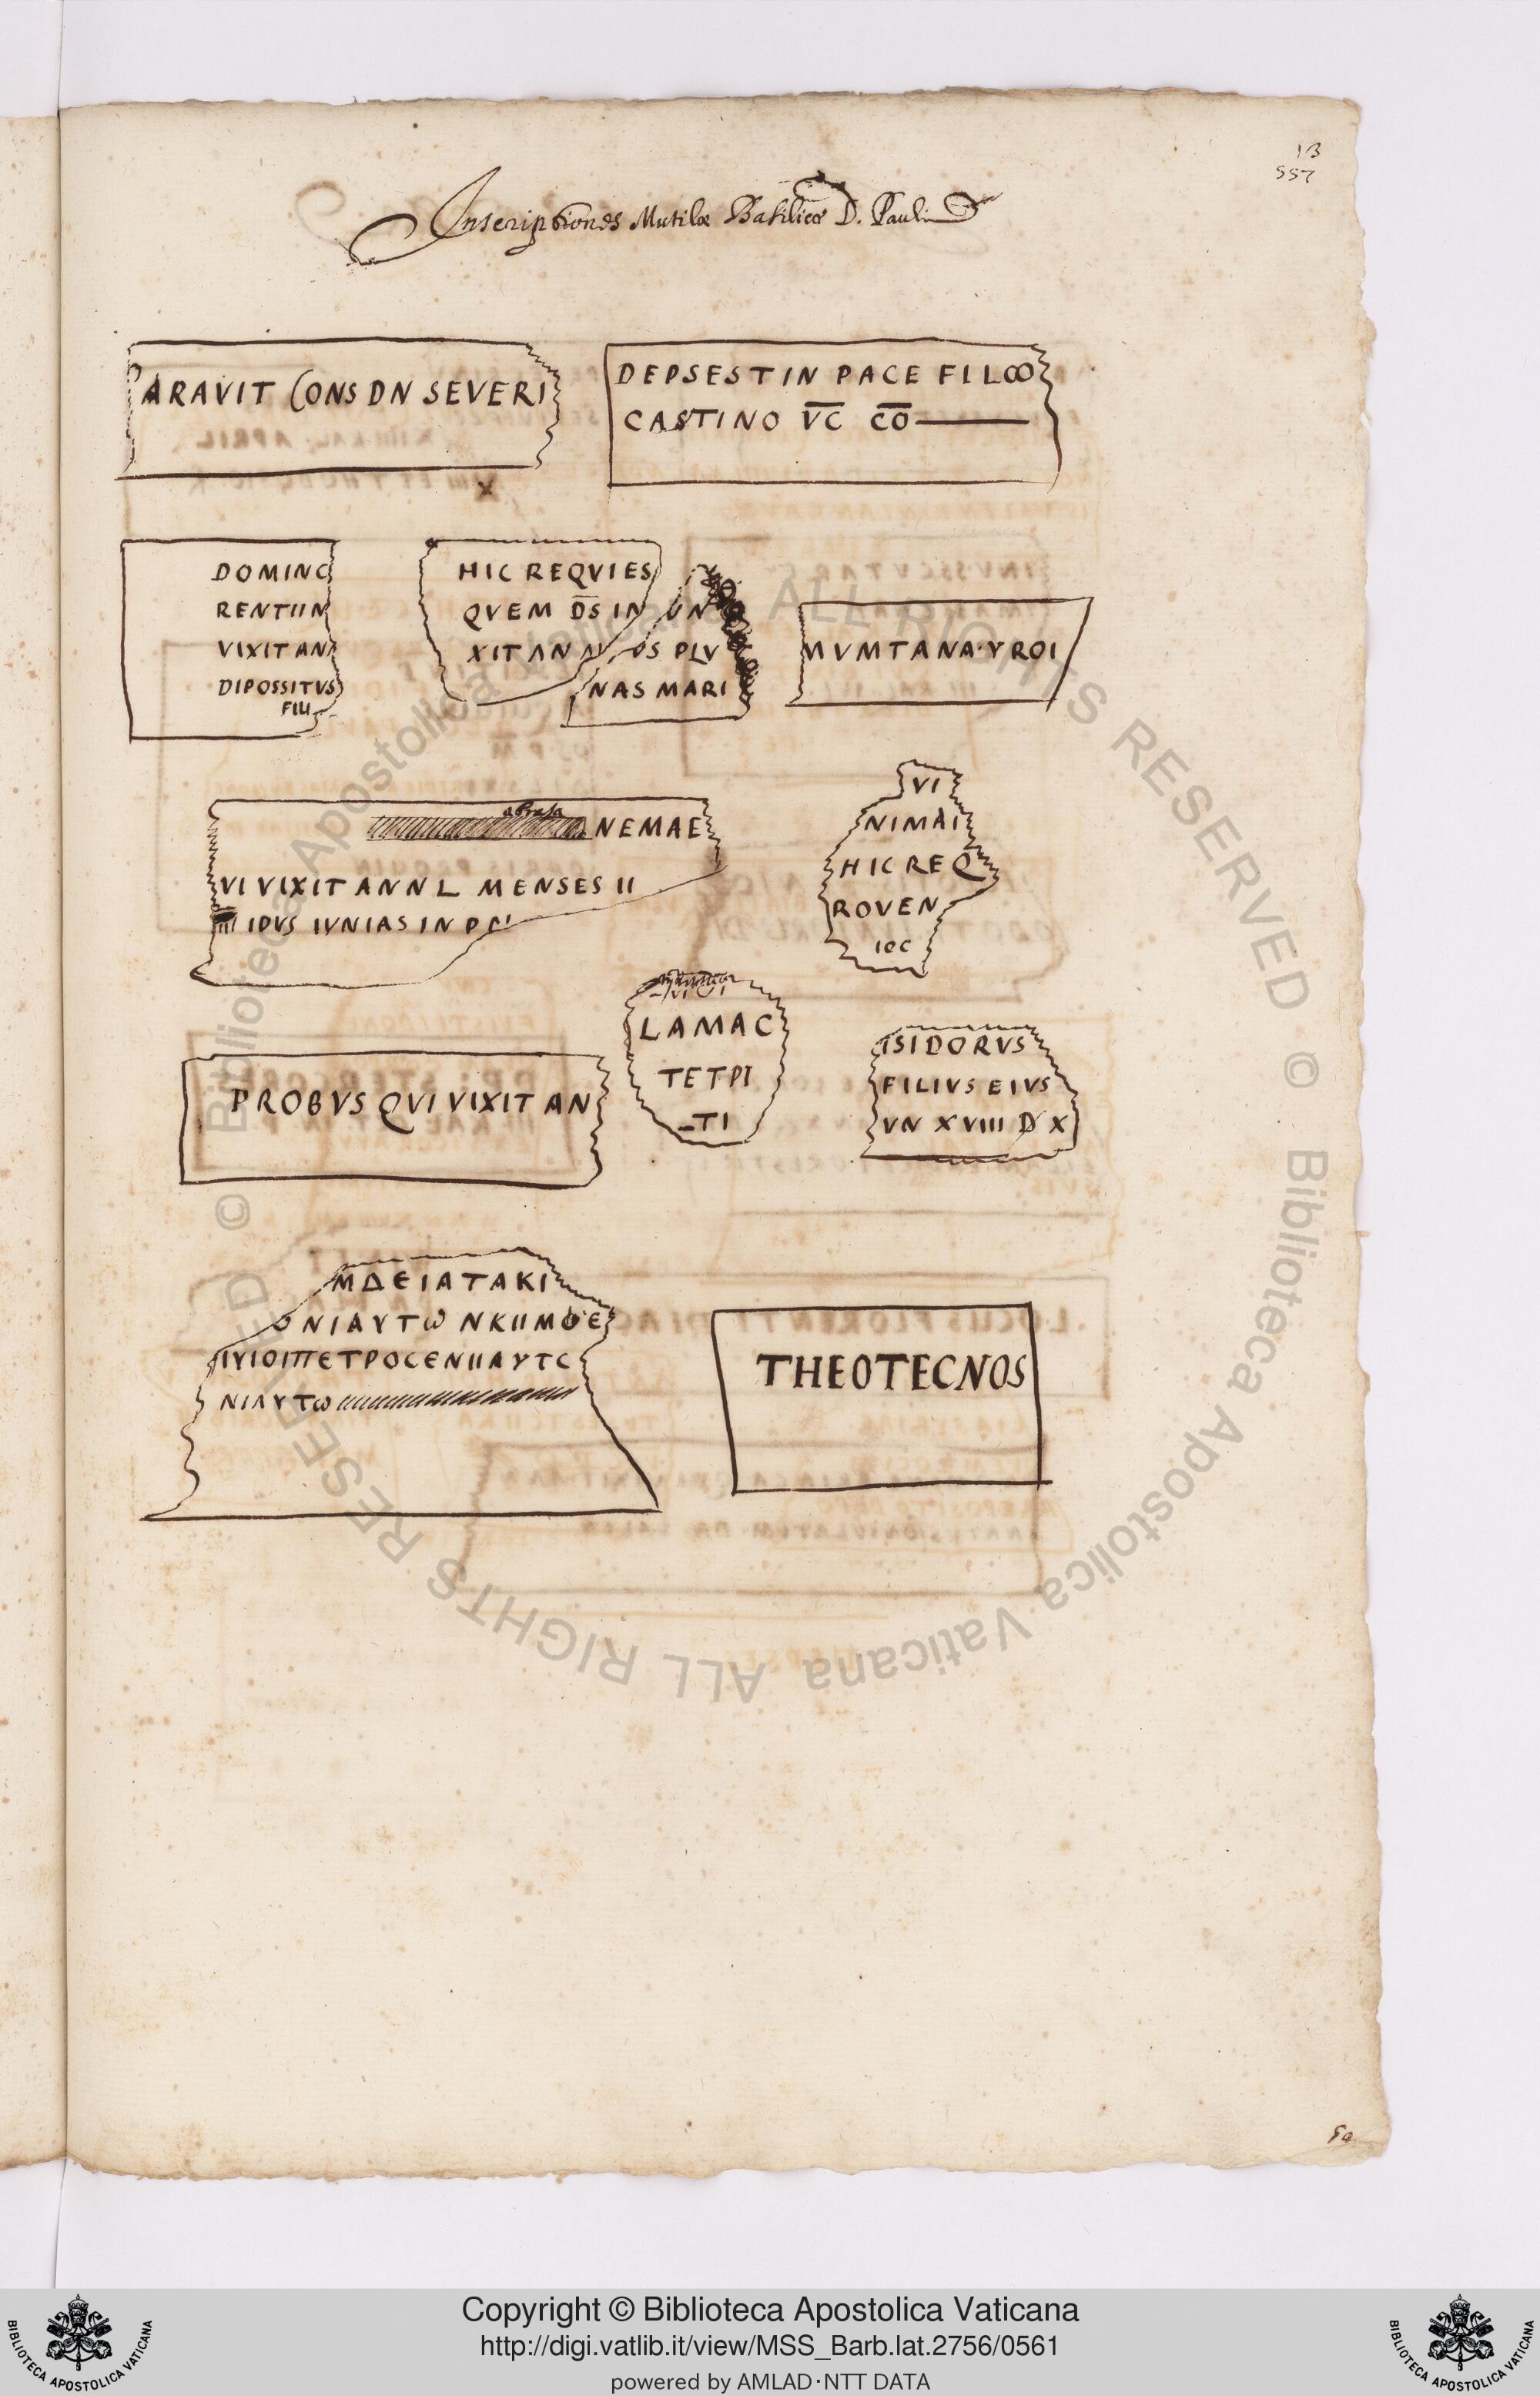 13
557
Inscriptiones Mutilæ Basilicæ D. Pauli
ARAVIT CONS DN SEVERI
DEPSEST IN PACE FILOO
CASTINO V̅C̅ C̅O̅
DOMINC
RENTIIN
VIXIT AN
DIPOSSITVS
FILI
HIC REQVIES
QVEM D̅S IN VN
XIT ANN OS PLV
NAS MARI
NVMTANA·YROI
abrasa
NEMAE
VI VIXIT ANN L MENSES II
III IDVS IVNIAS IN
VI
NIMAI
HIC REQ
ROVEN
IOC
PROBVS QVI VIXIT AN
LAMAC
TETPI
TI
ISIDORVS
FILIVS EIVS
VN XVIII D X
ΜΔΕΙΑΤΑΚΙ
ΟΝΙΑΥΤω ΝΚΙΙΜΘΕ
ΙΥΙΟΙΠΕΤΡΟCΕΝΙΙΑΥΤC
ΝΙΑΥΤω
THEOTECNOS
© Biblioteca Apostolica Vaticana ALL RIGHTS RESERVED © Biblioteca Apostolica Vaticana ALL RIGHTS RESERVED
Copyright © Biblioteca Apostolica Vaticana
http://digi.vatlib.it/view/MSS_Barb.lat.2756/0561
powered by AMLAD·NTT DATA
BIBLIOTECA APOSTOLICA VATICANA
BIBLIOTECA APOSTOLICA VATICANA